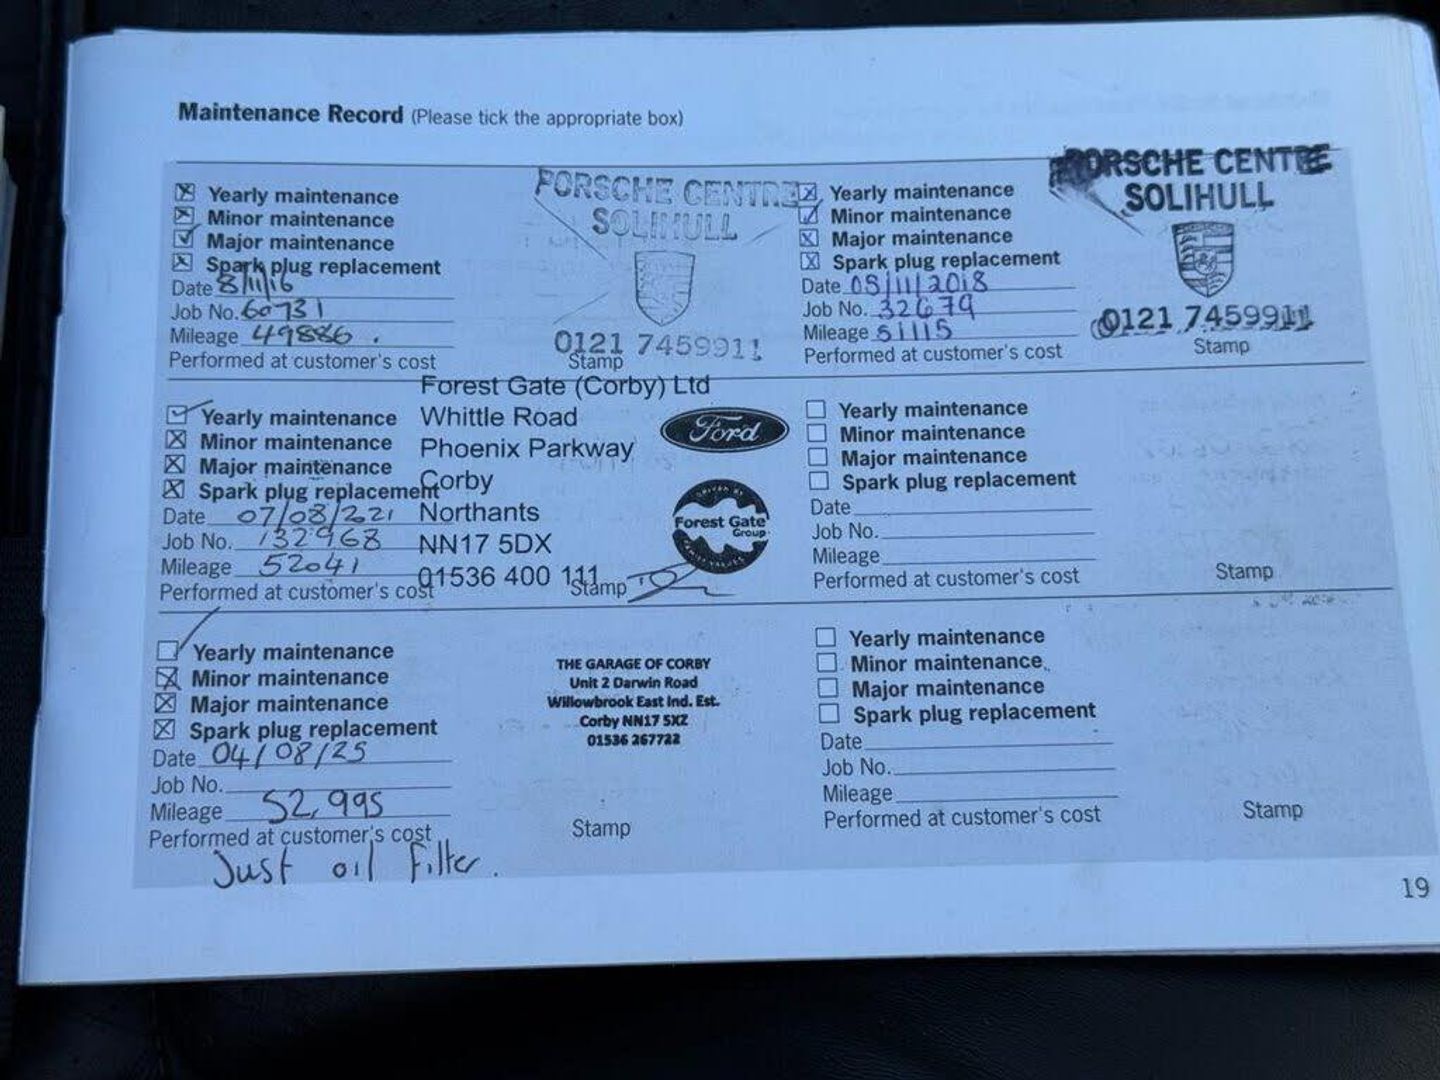 Maintenance Record (Please tick the appropriate box)
Yearly maintenance
Minor maintenance
Major maintenance
Spark plug replacement
Date 8/11/16
Job No. 60731
Mileage 49886.
Performed at customer's cost
PORSCHE CENTRE
SOLIHULL
0121 7459911
Stamp
Yearly maintenance
Minor maintenance
Major maintenance
Spark plug replacement
Date 05/11/2018
Job No. 32679
Mileage 51115
Performed at customer's cost
PORSCHE CENTRE
SOLIHULL
0121 7459911
Stamp
Yearly maintenance
Minor maintenance
Major maintenance
Spark plug replacement
Date 07/08/2021
Job No. 132968
Mileage 52041
Performed at customer's cost
Forest Gate (Corby) Ltd
Whittle Road
Phoenix Parkway
Corby
Northants
NN17 5DX
01536 400 111
Stamp
Ford
Forest Gate
Group
Yearly maintenance
Minor maintenance
Major maintenance
Spark plug replacement
Date
Job No.
Mileage
Performed at customer's cost
Stamp
Yearly maintenance
Minor maintenance
Major maintenance
Spark plug replacement
Date 04/08/25
Job No.
Mileage 52,995
Performed at customer's cost
Just oil filter.
THE GARAGE OF CORBY
Unit 2 Darwin Road
Willowbrook East Ind. Est.
Corby NN17 5XZ
01536 267722
Stamp
Yearly maintenance
Minor maintenance
Major maintenance
Spark plug replacement
Date
Job No.
Mileage
Performed at customer's cost
Stamp
19